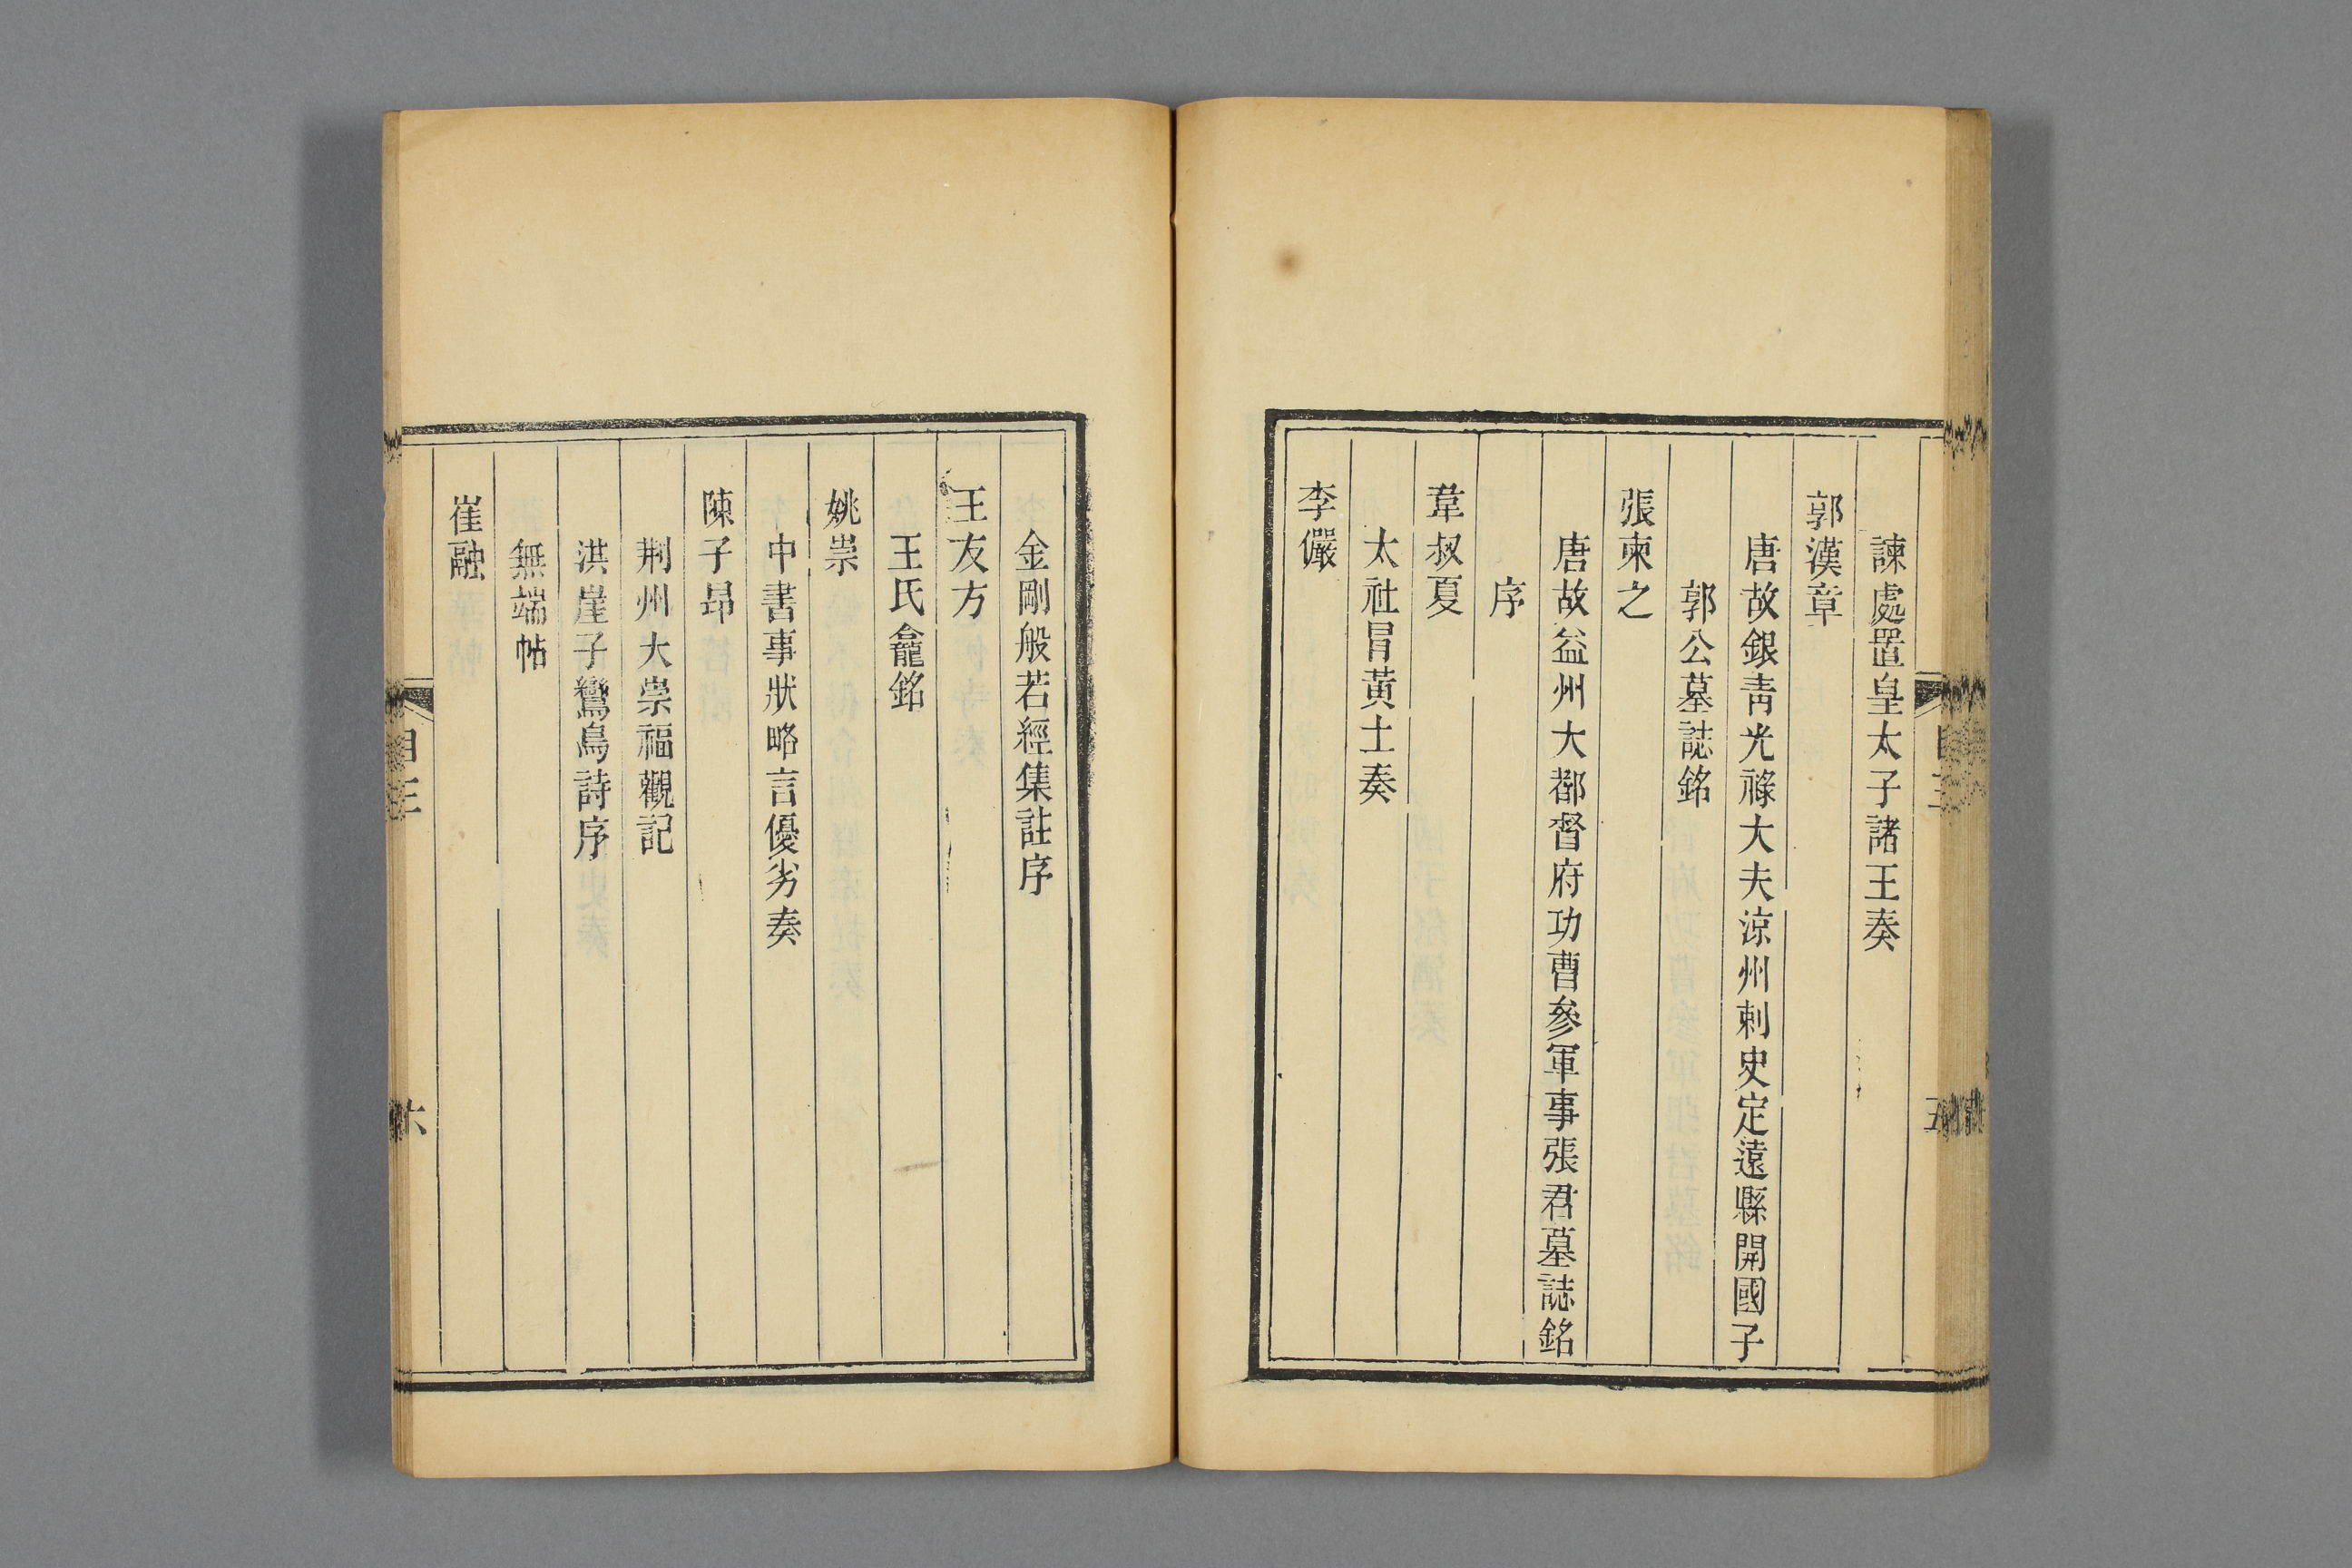 諫處置皇太子諸王奏
郭漢章
唐故銀靑光祿大夫涼州刺史定遠縣開國子
郭公墓誌銘
張柬之
唐故益州大都督府功曹參軍事張君墓誌銘
序
韋叔夏
太社冒黃土奏
李儼
金剛般若經集註序
王友方
王氏龕銘
姚崇
中書事狀略言優劣奏
陳子昂
荆州大崇福觀記
洪崖子鸞鳥詩序
無端帖
崔融
目三
六